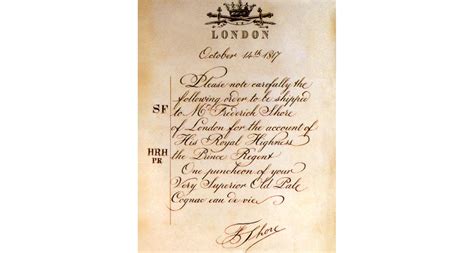 LONDON
October 14th 1817
Please note carefully the
following order to be shipped
SF to Mr Frederick Shore
of London for the account of
His Royal Highness
HRH the Prince Regent
PR
One puncheon of your
Very Superior Old Pale
Cognac eau de vie
F Shore